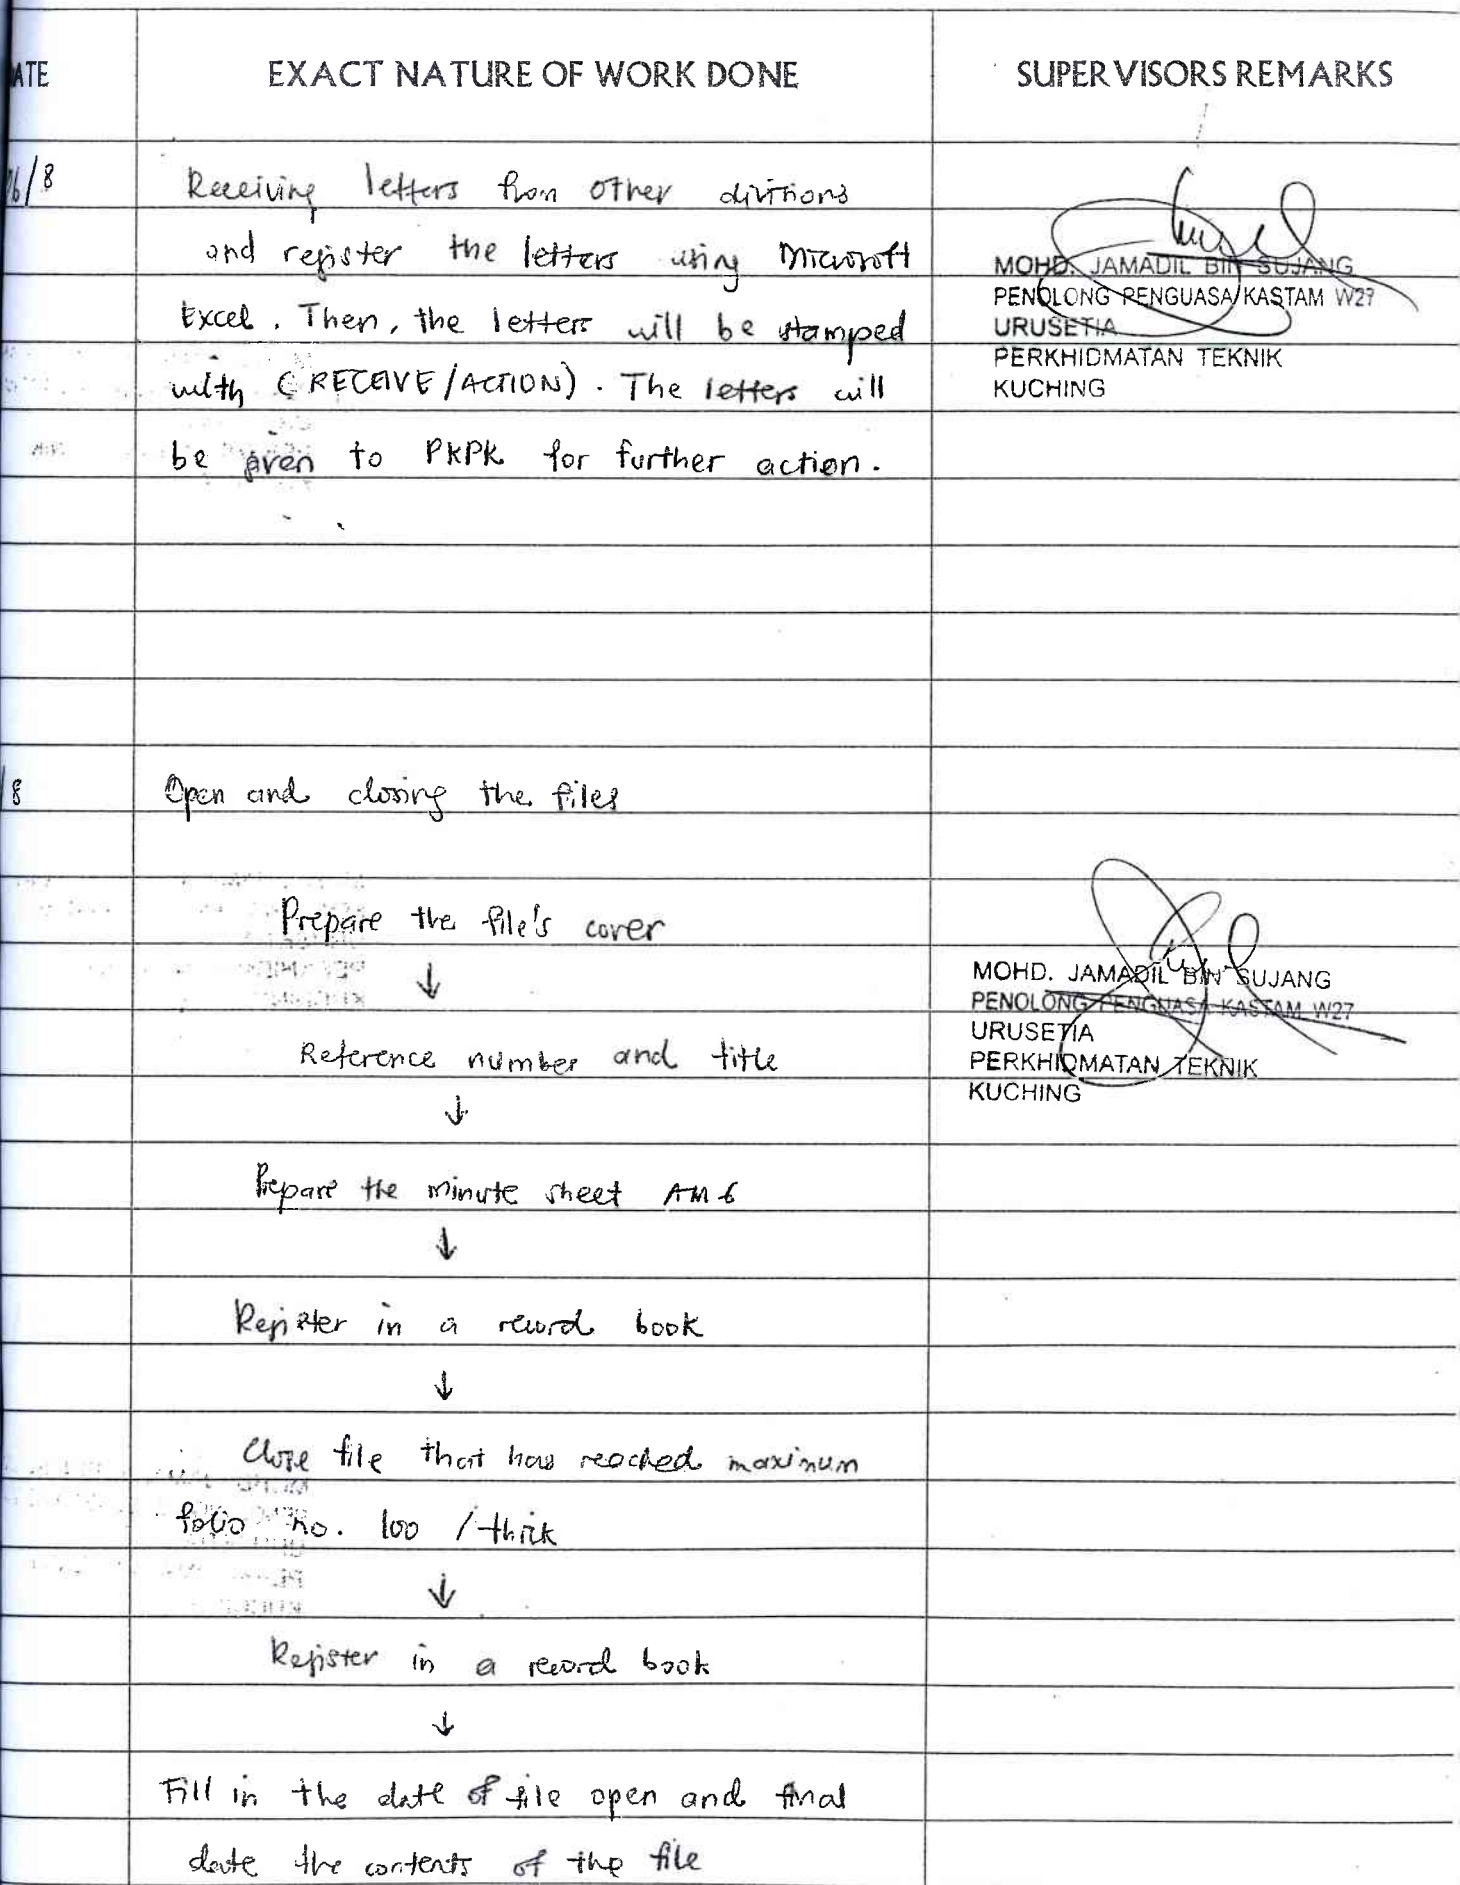 ATE EXACT NATURE OF WORK DONE SUPERVISORS REMARKS
26/8 Receiving letters from other divitions
and register the letters using Microsoft
Excel. Then, the letters will be stamped
with (RECEIVE/ACTION). The letters will
be given to PKPK for further action.
MOHD. JAMADIL BIN SUJANG
PENOLONG PENGUASA KASTAM W27
URUSETIA
PERKHIDMATAN TEKNIK
KUCHING
/8 Open and closing the files
Prepare the file's cover
↓
Reference number and title
↓
Prepare the minute sheet AM 6
↓
Register in a record book
↓
Close file that has reached maximum
folio no. 100 / thick
↓
Register in a record book
↓
Fill in the date of file open and final
date the contents of the file
MOHD. JAMADIL BIN SUJANG
PENOLONG PENGUASA KASTAM W27
URUSETIA
PERKHIDMATAN TEKNIK
KUCHING